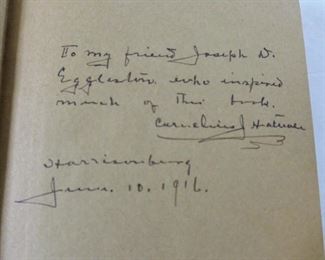 To my friend Joseph D.
Eggleston who inspired
much of this book.
Cornelius J. Heatwole
Harrisonburg
June. 10. 1916.